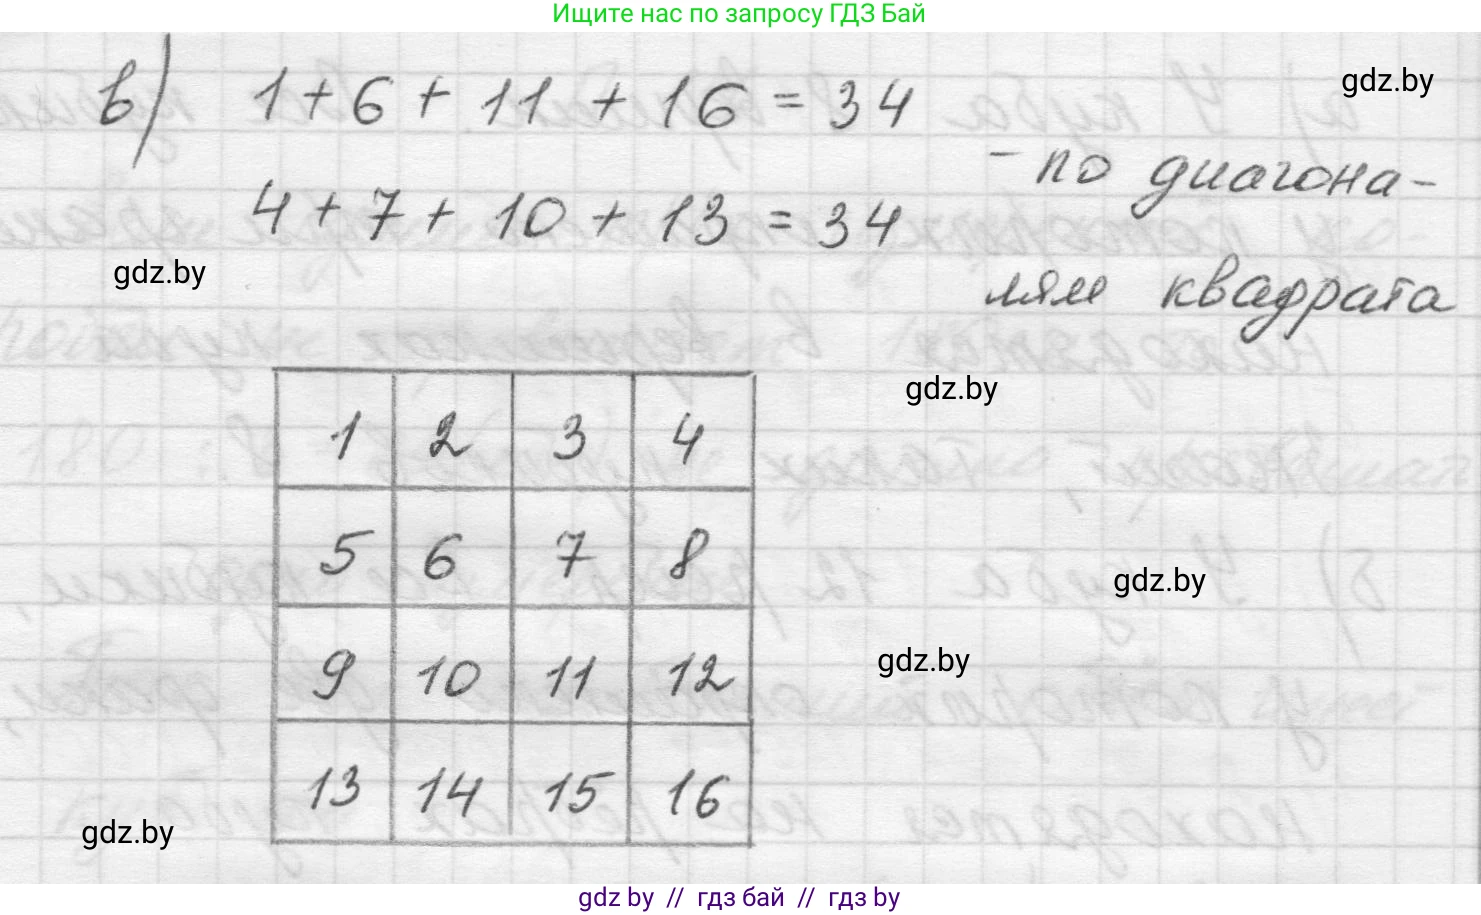 Ищите нас по запросу ГДЗ Бай
в) 1+6+11+16=34
gdz.by
4+7+10+13=34
- по диагона-
лям квадрата
gdz.by
gdz.by
1 2 3 4
5 6 7 8
gdz.by
9 10 11 12
gdz.by
13 14 15 16
gdz.by
gdz by // гдз бай // gdz by